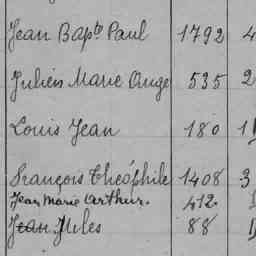 Jean Bapte Paul 1792 4
Julien Marie Ange 535 2
Louis Jean 180 1
François Théophile 1408 3
Jean Marie Arthur. 412.
Jean Jules 88